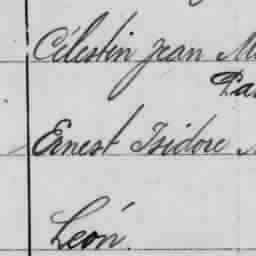 Célestin Jean M
Pa
Ernest Isidore
Léon.